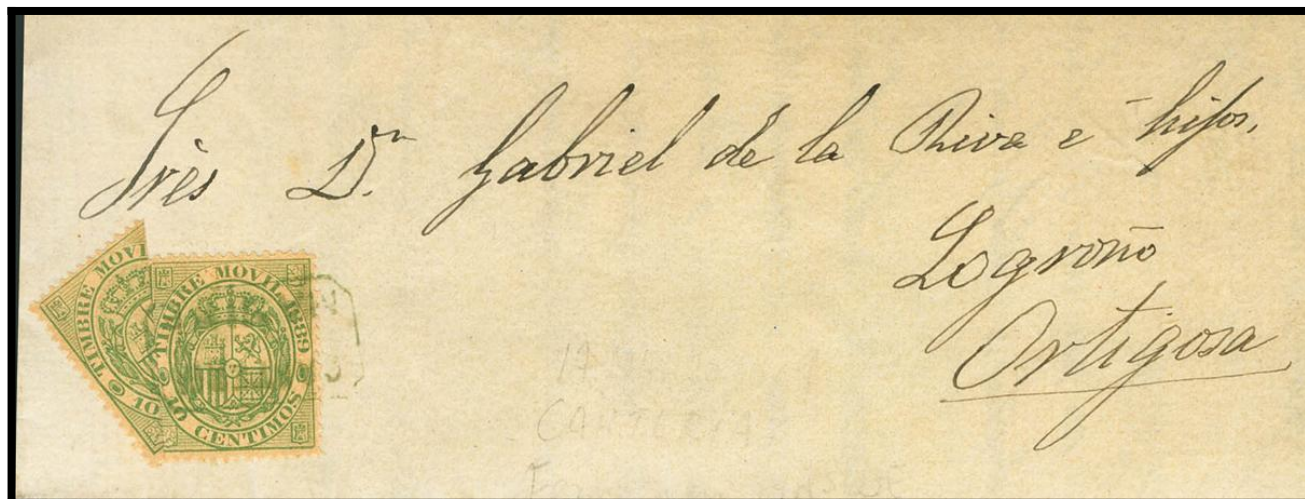 Srès Dn. Gabriel de la Riva e hijos.
Logroño
Ortigosa
TIMBRE MOVI
10
TIMBRE MOVIL 1889
10 CENTIMOS
17
CARTERIA